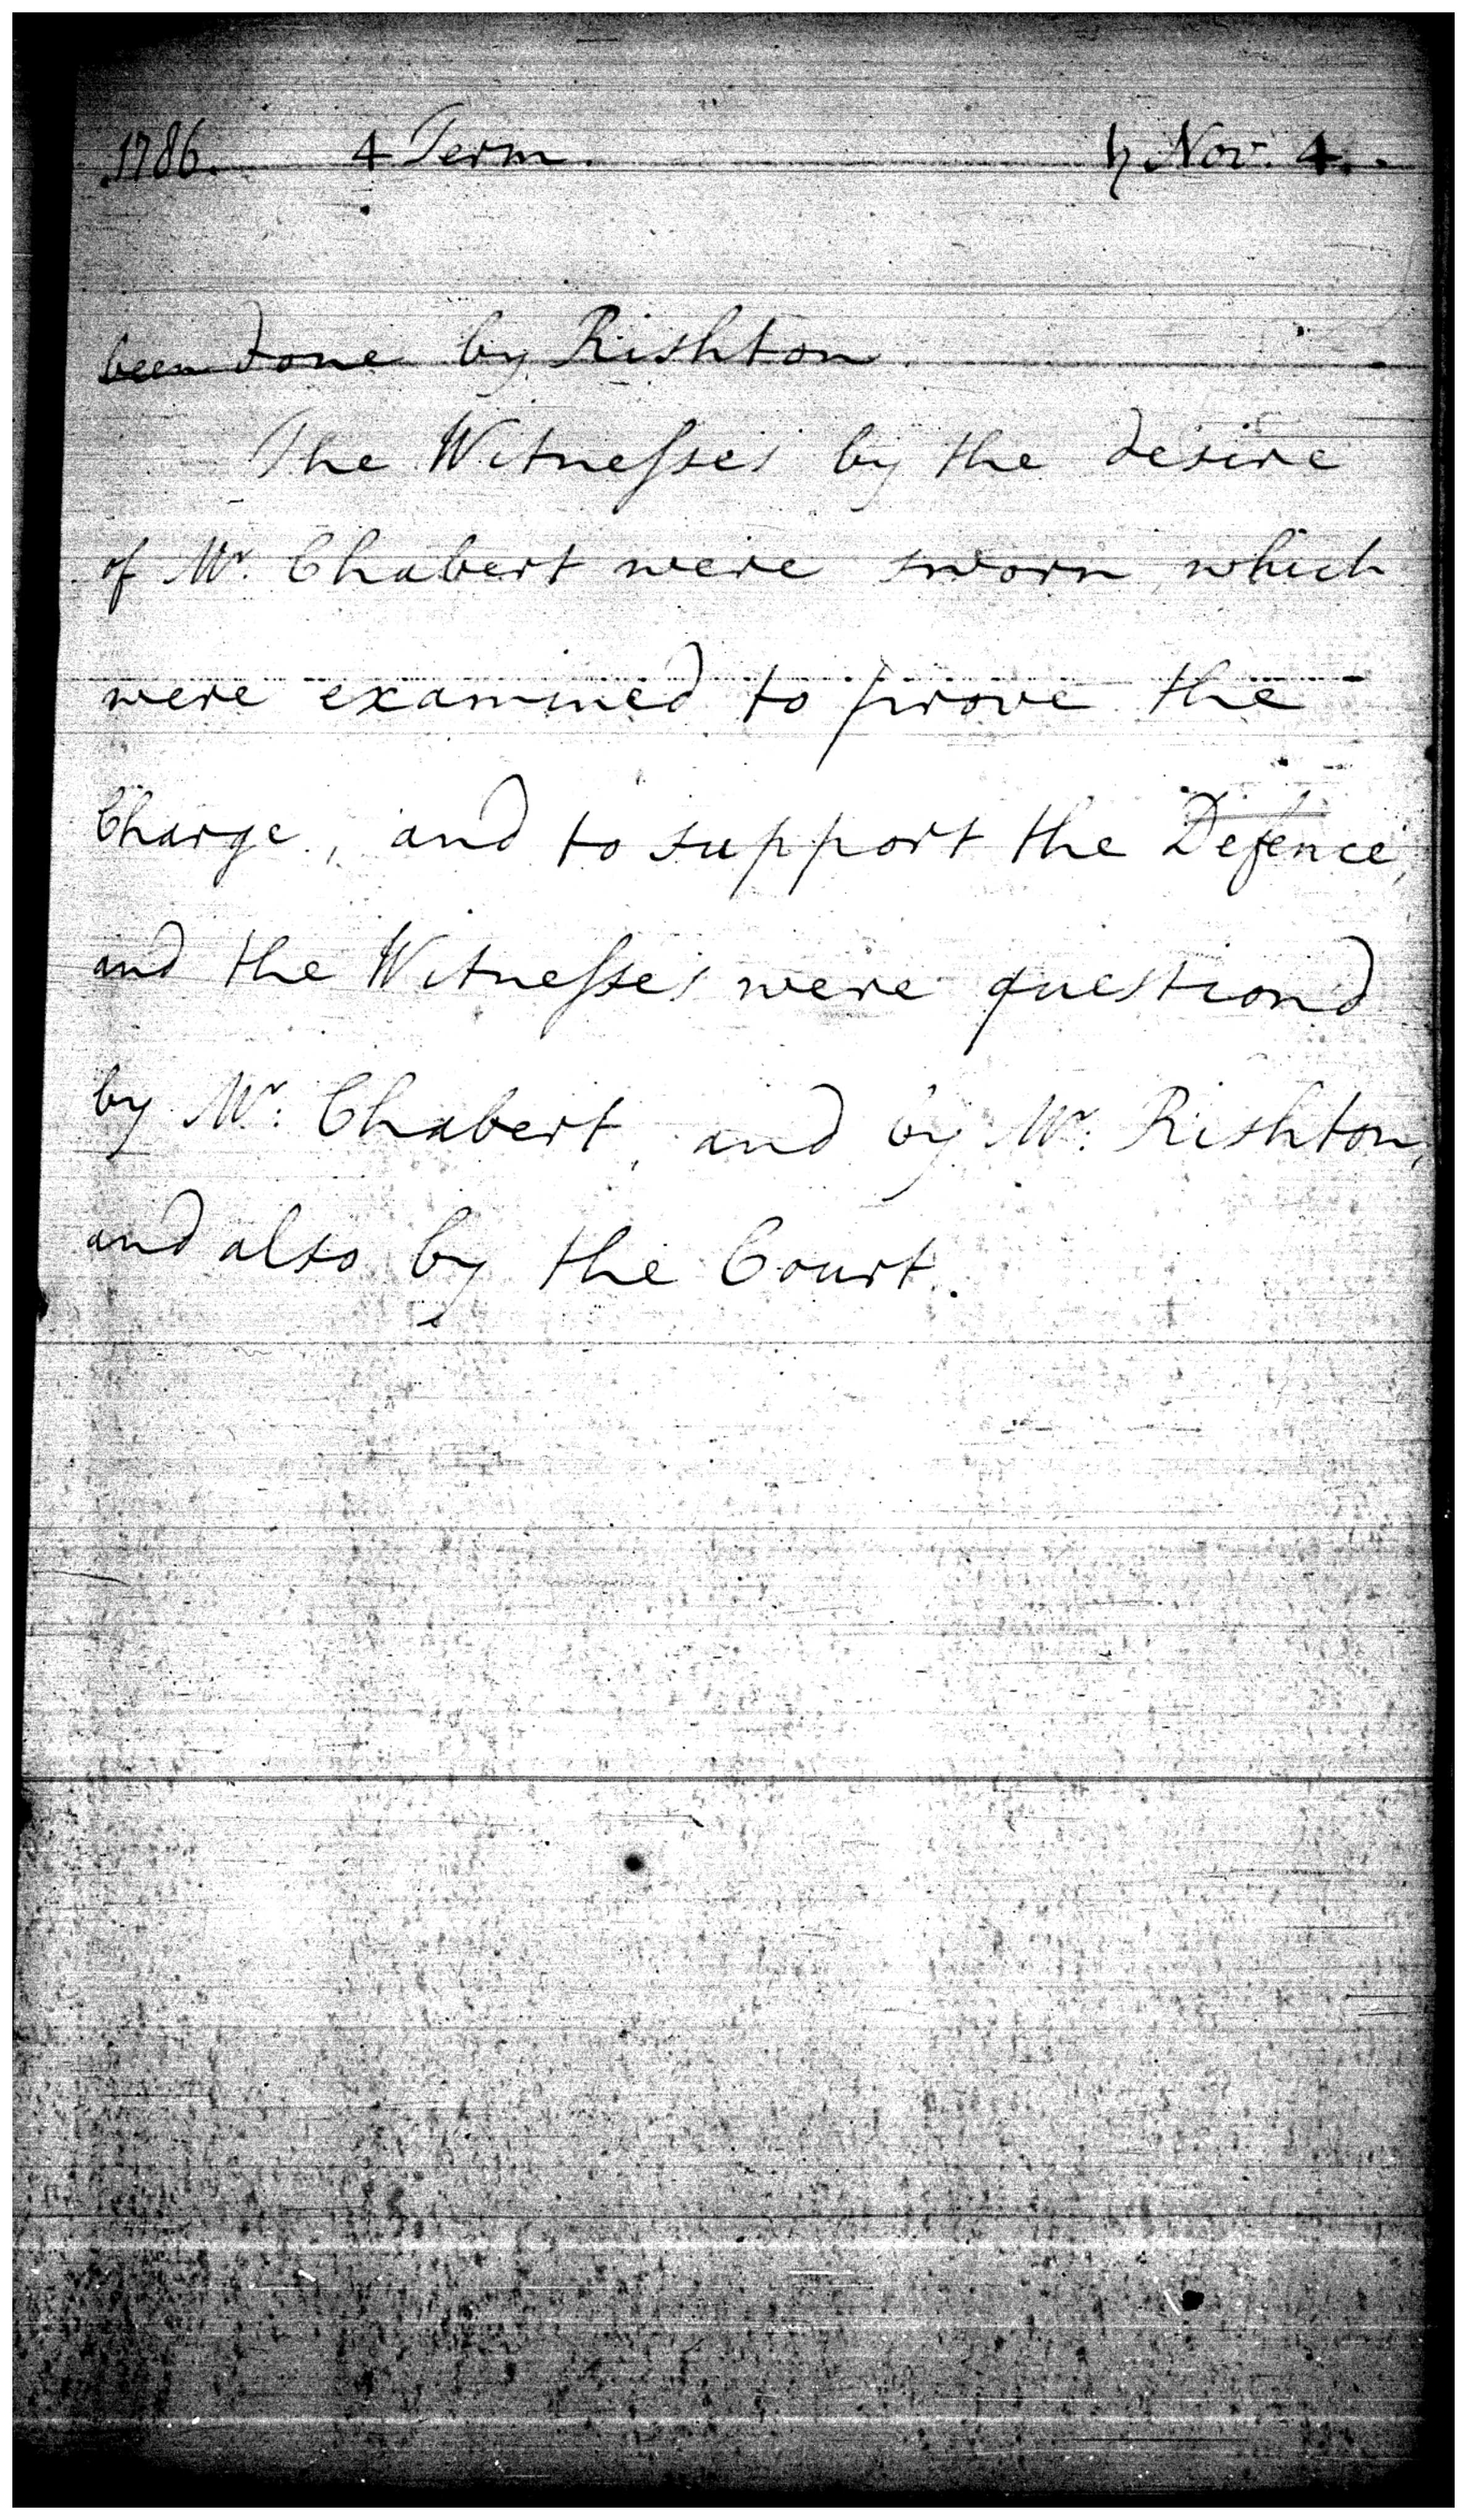 1786. 4 Term. ♄ Nov. 4.
been done by Rishton.
The Witneſses by the desire
of Mr. Chabert were sworn, which
were examined to prove the
Charge, and to support the Defence,
and the Witneſses were question'd
by Mr. Chabert, and by Mr. Rishton,
and also by the Court.